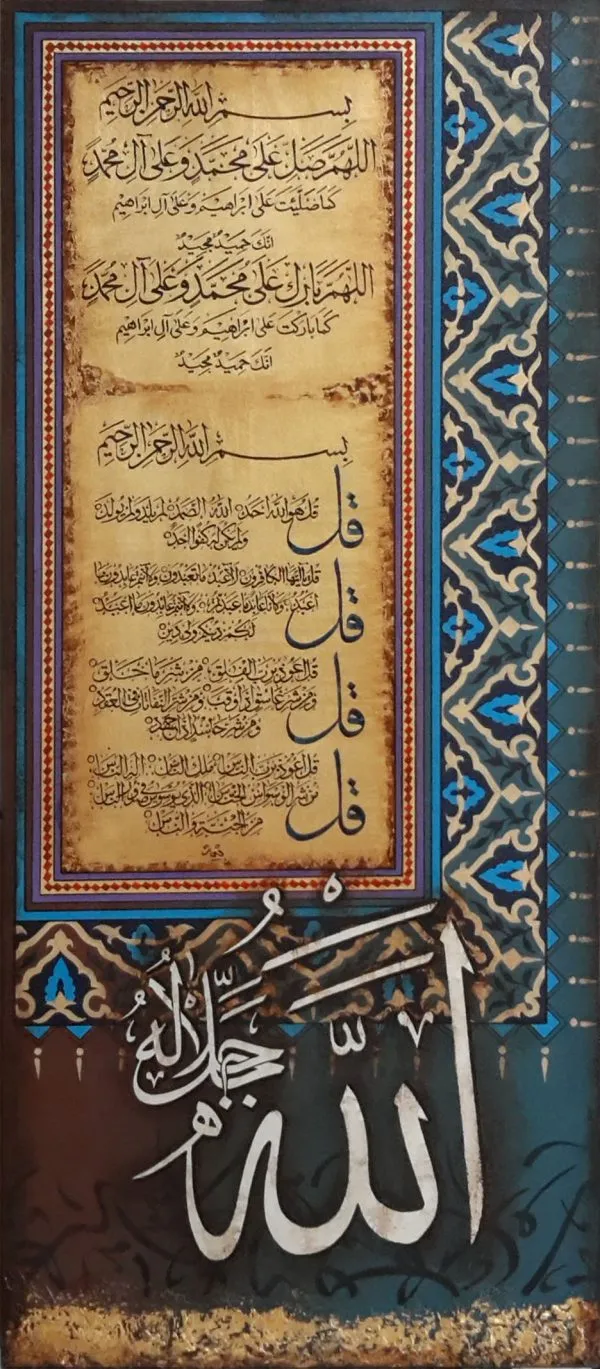 بسم الله الرحمن الرحيم
اللهم صل على محمد وعلى آل محمد
كما صليت على ابراهيم وعلى آل ابراهيم
انك حميد مجيد
اللهم بارك على محمد وعلى آل محمد
كما باركت على ابراهيم وعلى آل ابراهيم
انك حميد مجيد
بسم الله الرحمن الرحيم
قل
قل هو الله احد الله الصمد لم يلد ولم يولد
ولم يكن له كفوا احد
قل
قل يا ايها الكافرون لا اعبد ما تعبدون ولا انتم عابدون ما
اعبد ولا انا عابد ما عبدتم ولا انتم عابدون ما اعبد
لكم دينكم ولي دين
قل
قل اعوذ برب الفلق من شر ما خلق
ومن شر غاسق اذا وقب ومن شر النفاثات في العقد
ومن شر حاسد اذا حسد
قل
قل اعوذ برب الناس ملك الناس اله الناس
من شر الوسواس الخناس الذي يوسوس في صدور الناس
من الجنة والناس
الله
جل جلاله